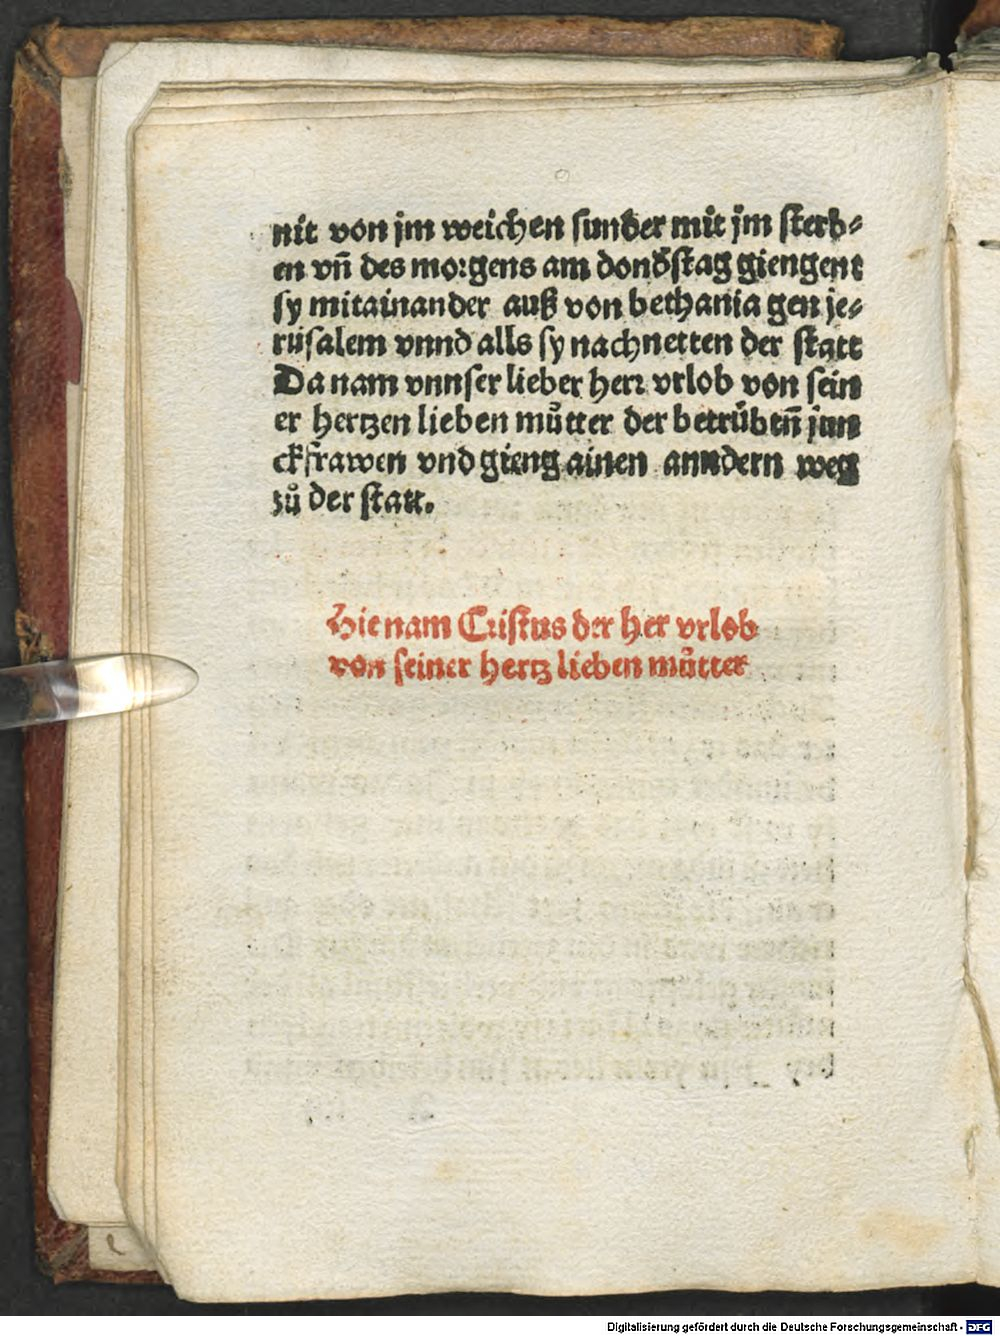 nit von jm weichen sunder mit jm sterb⸗
en vn̄ des morgens am dondʼstag giengent
sy mitainander auß von bethania gen je⸗
rusalem vnnd alls sy nachnetten der statt
Da nam vnnser lieber herr vrlob von sein
er hertzen lieben muͦtter der betruͤbtn̄ jun
ckfrawen vnd gieng ainen anndern weg
zuͦ der statt.
Hie nam Cristus der her vrlob
von seiner hertz lieben muͦtter
Digitalisierung gefördert durch die Deutsche Forschungsgemeinschaft - DFG